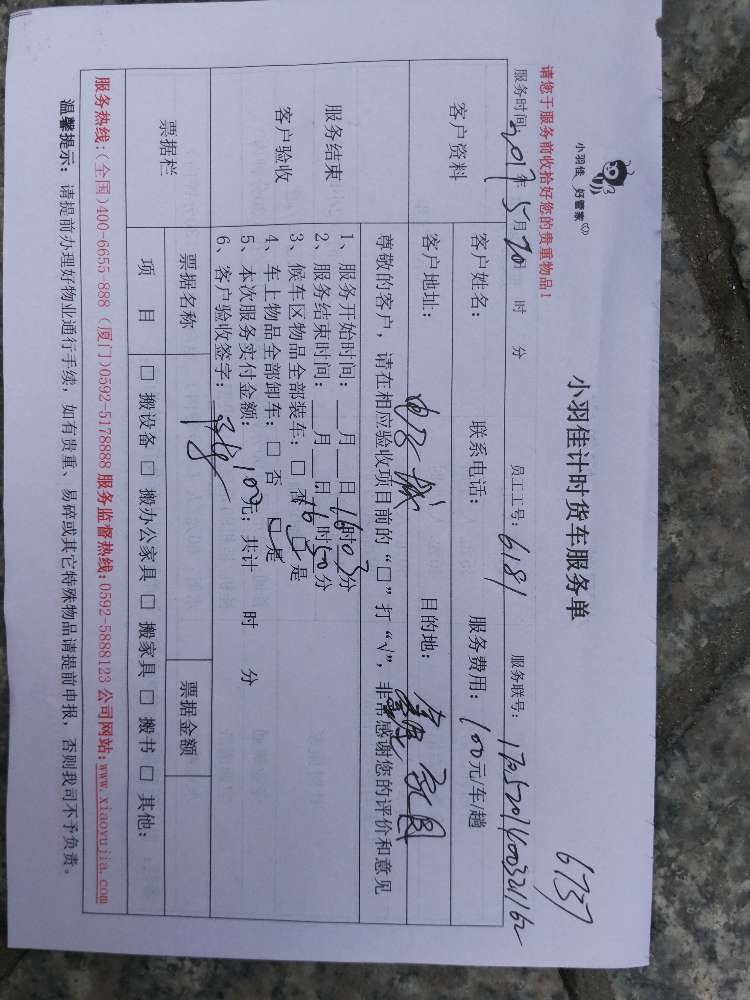 小羽佳 好管家
小羽佳计时货车服务单
6737
请您于服务前收拾好您的贵重物品！
服务时间: 2017年5月20日 时 分 员工工号: 6181 服务联号:
客户资料
客户姓名: 联系电话: 服务费用: 100元/车/趟
客户地址: 目的地:
尊敬的客户，请在相应验收项目前的“□”打“√”，非常感谢您的评价和意见
服务结束
客户验收
1、服务开始时间: __月__日16时03分
2、服务结束时间: __月__日16时50分
3、候车区物品全部装车: □ 否 □ 是
4、车上物品全部卸车: □ 否 □ 是
5、本次服务实付金额: 100元; 共计 时 分
6、客户验收签字:
票据栏
票据名称 票据金额
项 目 □ 搬设备 □ 搬办公家具 □ 搬家具 □ 搬书 □ 其他:
服务热线:(全国)400-6655-888 (厦门)0592-5178888 服务监督热线:0592-5888123 公司网站:www.xiaoyujia.com
温馨提示: 请提前办理好物业通行手续，如有贵重、易碎或其它特殊物品请提前申报，否则我司不予负责。